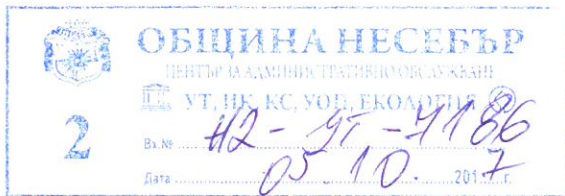 ОБЩИНА НЕСЕБЪР
ЦЕНТЪР ЗА АДМИНИСТРАТИВНО ОБСЛУЖВАНЕ
УТ, НК, КС, УОП, ЕКОЛОГИЯ
2
Вх.№ Н2-УТ-7186
Дата 05.10.2017г.